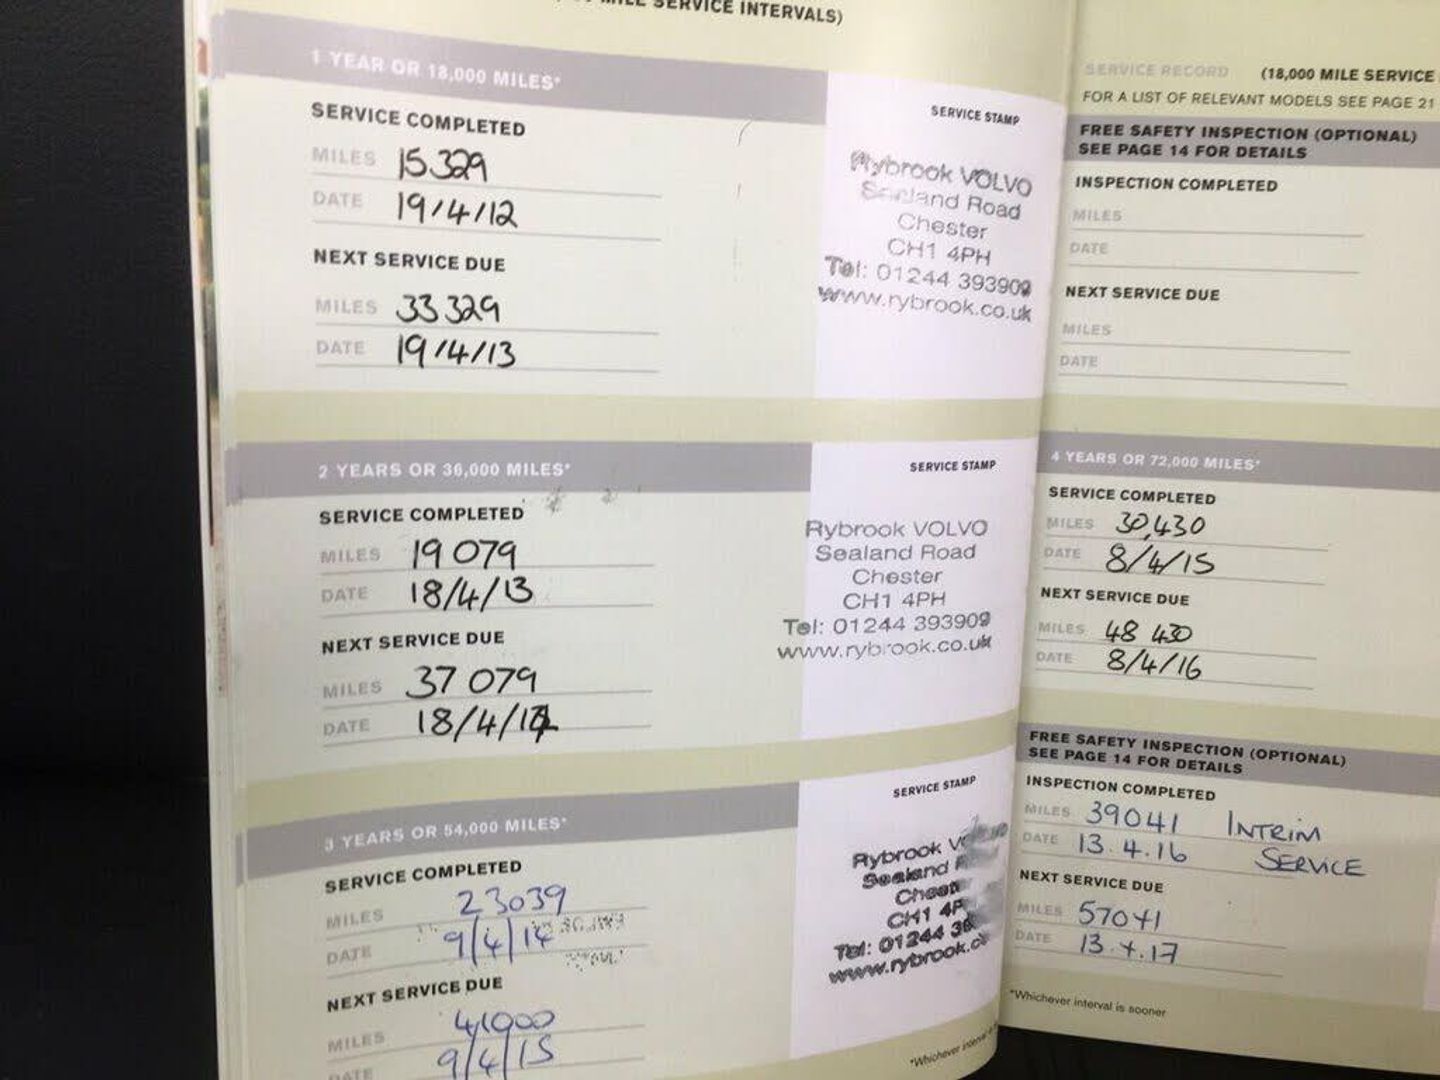 MILE SERVICE INTERVALS)
1 YEAR OR 18,000 MILES*
SERVICE COMPLETED
MILES 15329
DATE 19/4/12
NEXT SERVICE DUE
MILES 33329
DATE 19/4/13
SERVICE STAMP
Rybrook VOLVO
Sealand Road
Chester
CH1 4PH
Tel: 01244 393909
www.rybrook.co.uk
2 YEARS OR 36,000 MILES*
SERVICE COMPLETED
MILES 19079
DATE 18/4/13
NEXT SERVICE DUE
MILES 37079
DATE 18/4/14
SERVICE STAMP
Rybrook VOLVO
Sealand Road
Chester
CH1 4PH
Tel: 01244 393909
www.rybrook.co.uk
3 YEARS OR 54,000 MILES*
SERVICE COMPLETED
MILES 23039
DATE 9/4/14
NEXT SERVICE DUE
MILES 41000
DATE 9/4/15
SERVICE STAMP
Rybrook
Sealand
Chest
CH1 4P
Tel: 01244
www.rybrook.c
*Whichever
SERVICE RECORD (18,000 MILE SERVICE
FOR A LIST OF RELEVANT MODELS SEE PAGE 21
FREE SAFETY INSPECTION (OPTIONAL)
SEE PAGE 14 FOR DETAILS
INSPECTION COMPLETED
MILES
DATE
NEXT SERVICE DUE
MILES
DATE
4 YEARS OR 72,000 MILES*
SERVICE COMPLETED
MILES 30,430
DATE 8/4/15
NEXT SERVICE DUE
MILES 48 430
DATE 8/4/16
FREE SAFETY INSPECTION (OPTIONAL)
SEE PAGE 14 FOR DETAILS
INSPECTION COMPLETED
MILES 39041 INTRIM
DATE 13.4.16 SERVICE
NEXT SERVICE DUE
MILES 57041
DATE 13.4.17
*Whichever interval is sooner